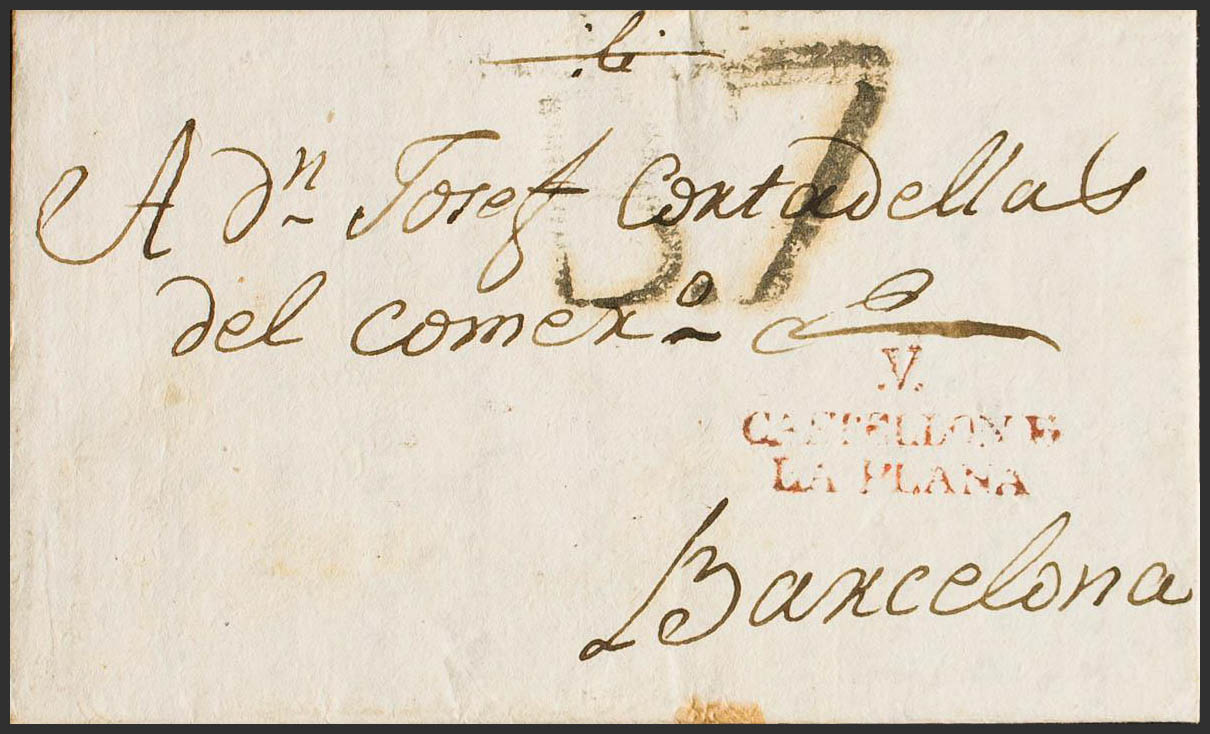 A Dn Josef Cortadellas
del comero
V.
CASTELLON DE
LA PLANA
Barcelona